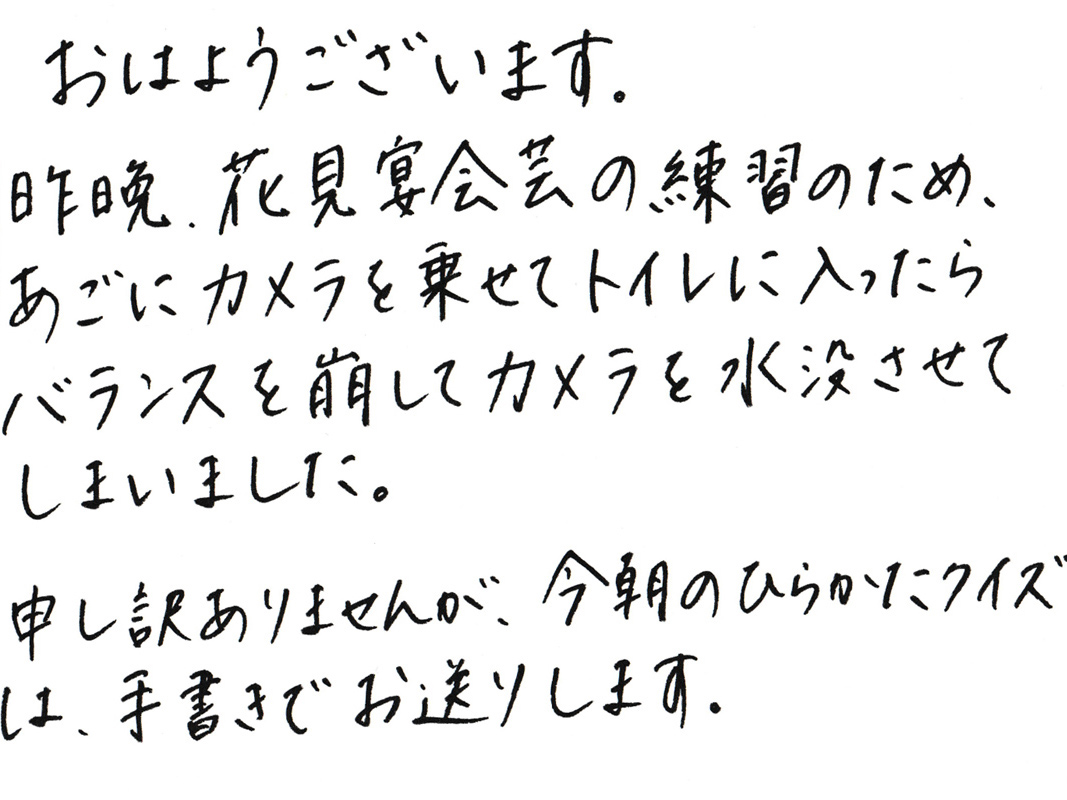 おはようございます。
昨晩、花見宴会芸の練習のため、
あごにカメラを乗せてトイレに入ったら
バランスを崩してカメラを水没させて
しまいました。
申し訳ありませんが、今朝のひらかたクイズ
は、手書きでお送りします。